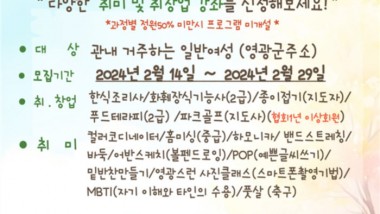 " 다양한 취미 및 취창업 강좌를 신청해보세요! "
*과정별 정원50% 미만시 프로그램 미개설 *
● 대 상 관내 거주하는 일반여성 (영광군주소)
● 모집기간 2024년 2월 14일 ~ 2024년 2월 29일
● 취.창업 한식조리사/화훼장식기능사(2급)/종이접기(지도자)/
푸드테라피(2급) /파크골프(지도사) (협회1년 이상회원)
● 취 미 컬러코디네이터/홈미싱(중급)/하모니카/ 밴드스트레칭/
바둑/어반스케치(볼펜드로잉)/POP(예쁜글씨쓰기)/
밑반찬만들기/영광스런 사진클래스(스마트폰촬영기법)/
MBTI(자기 이해와 타인의 수용)/풋살 (축구)